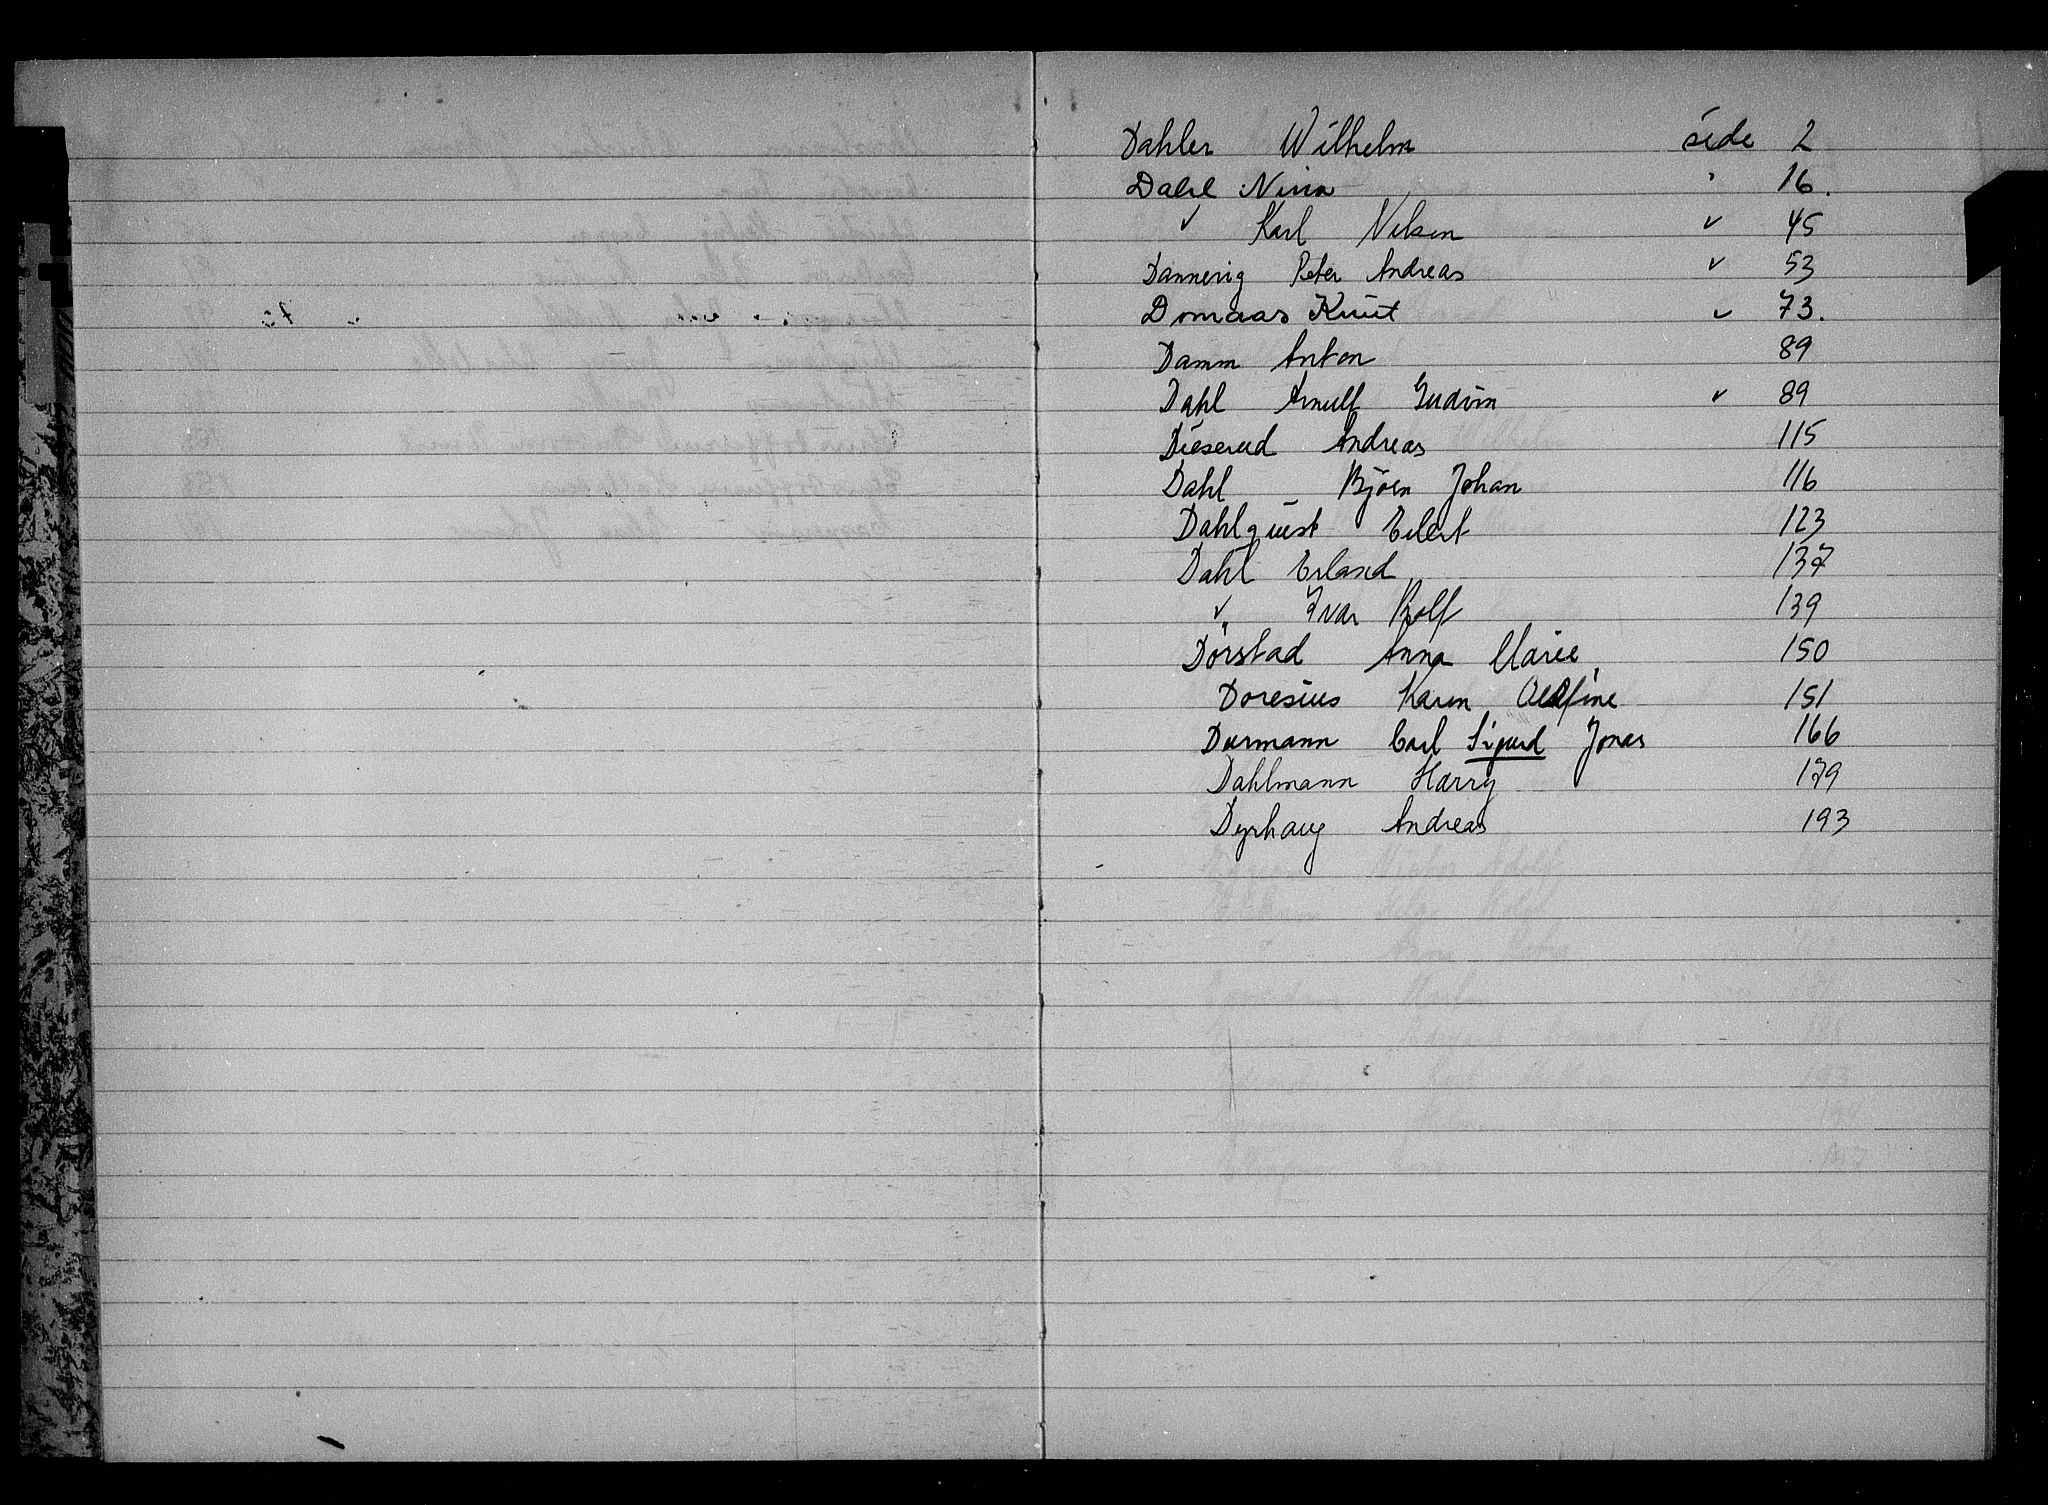 Dahler Wilhelm side 2
Dahl Nina " 16.
" Karl Nilsen " 45
Dannevig Peter Andreas " 53
Domaas Knut " 73.
Damm Anton 89
Dahl Arnulf Gudvin " 89
Dieserud Andreas 115
Dahl Bjørn Johan 116
Dahlquist Eilert 123
Dahl Erland 137
" Ivar Rolf 139
Dørstad Anna Marie 150
Doresius Karen 151
Durmann Carl Sigurd Jonas 166
Dahlmann Harry 179
Dyrhaug Andreas 193